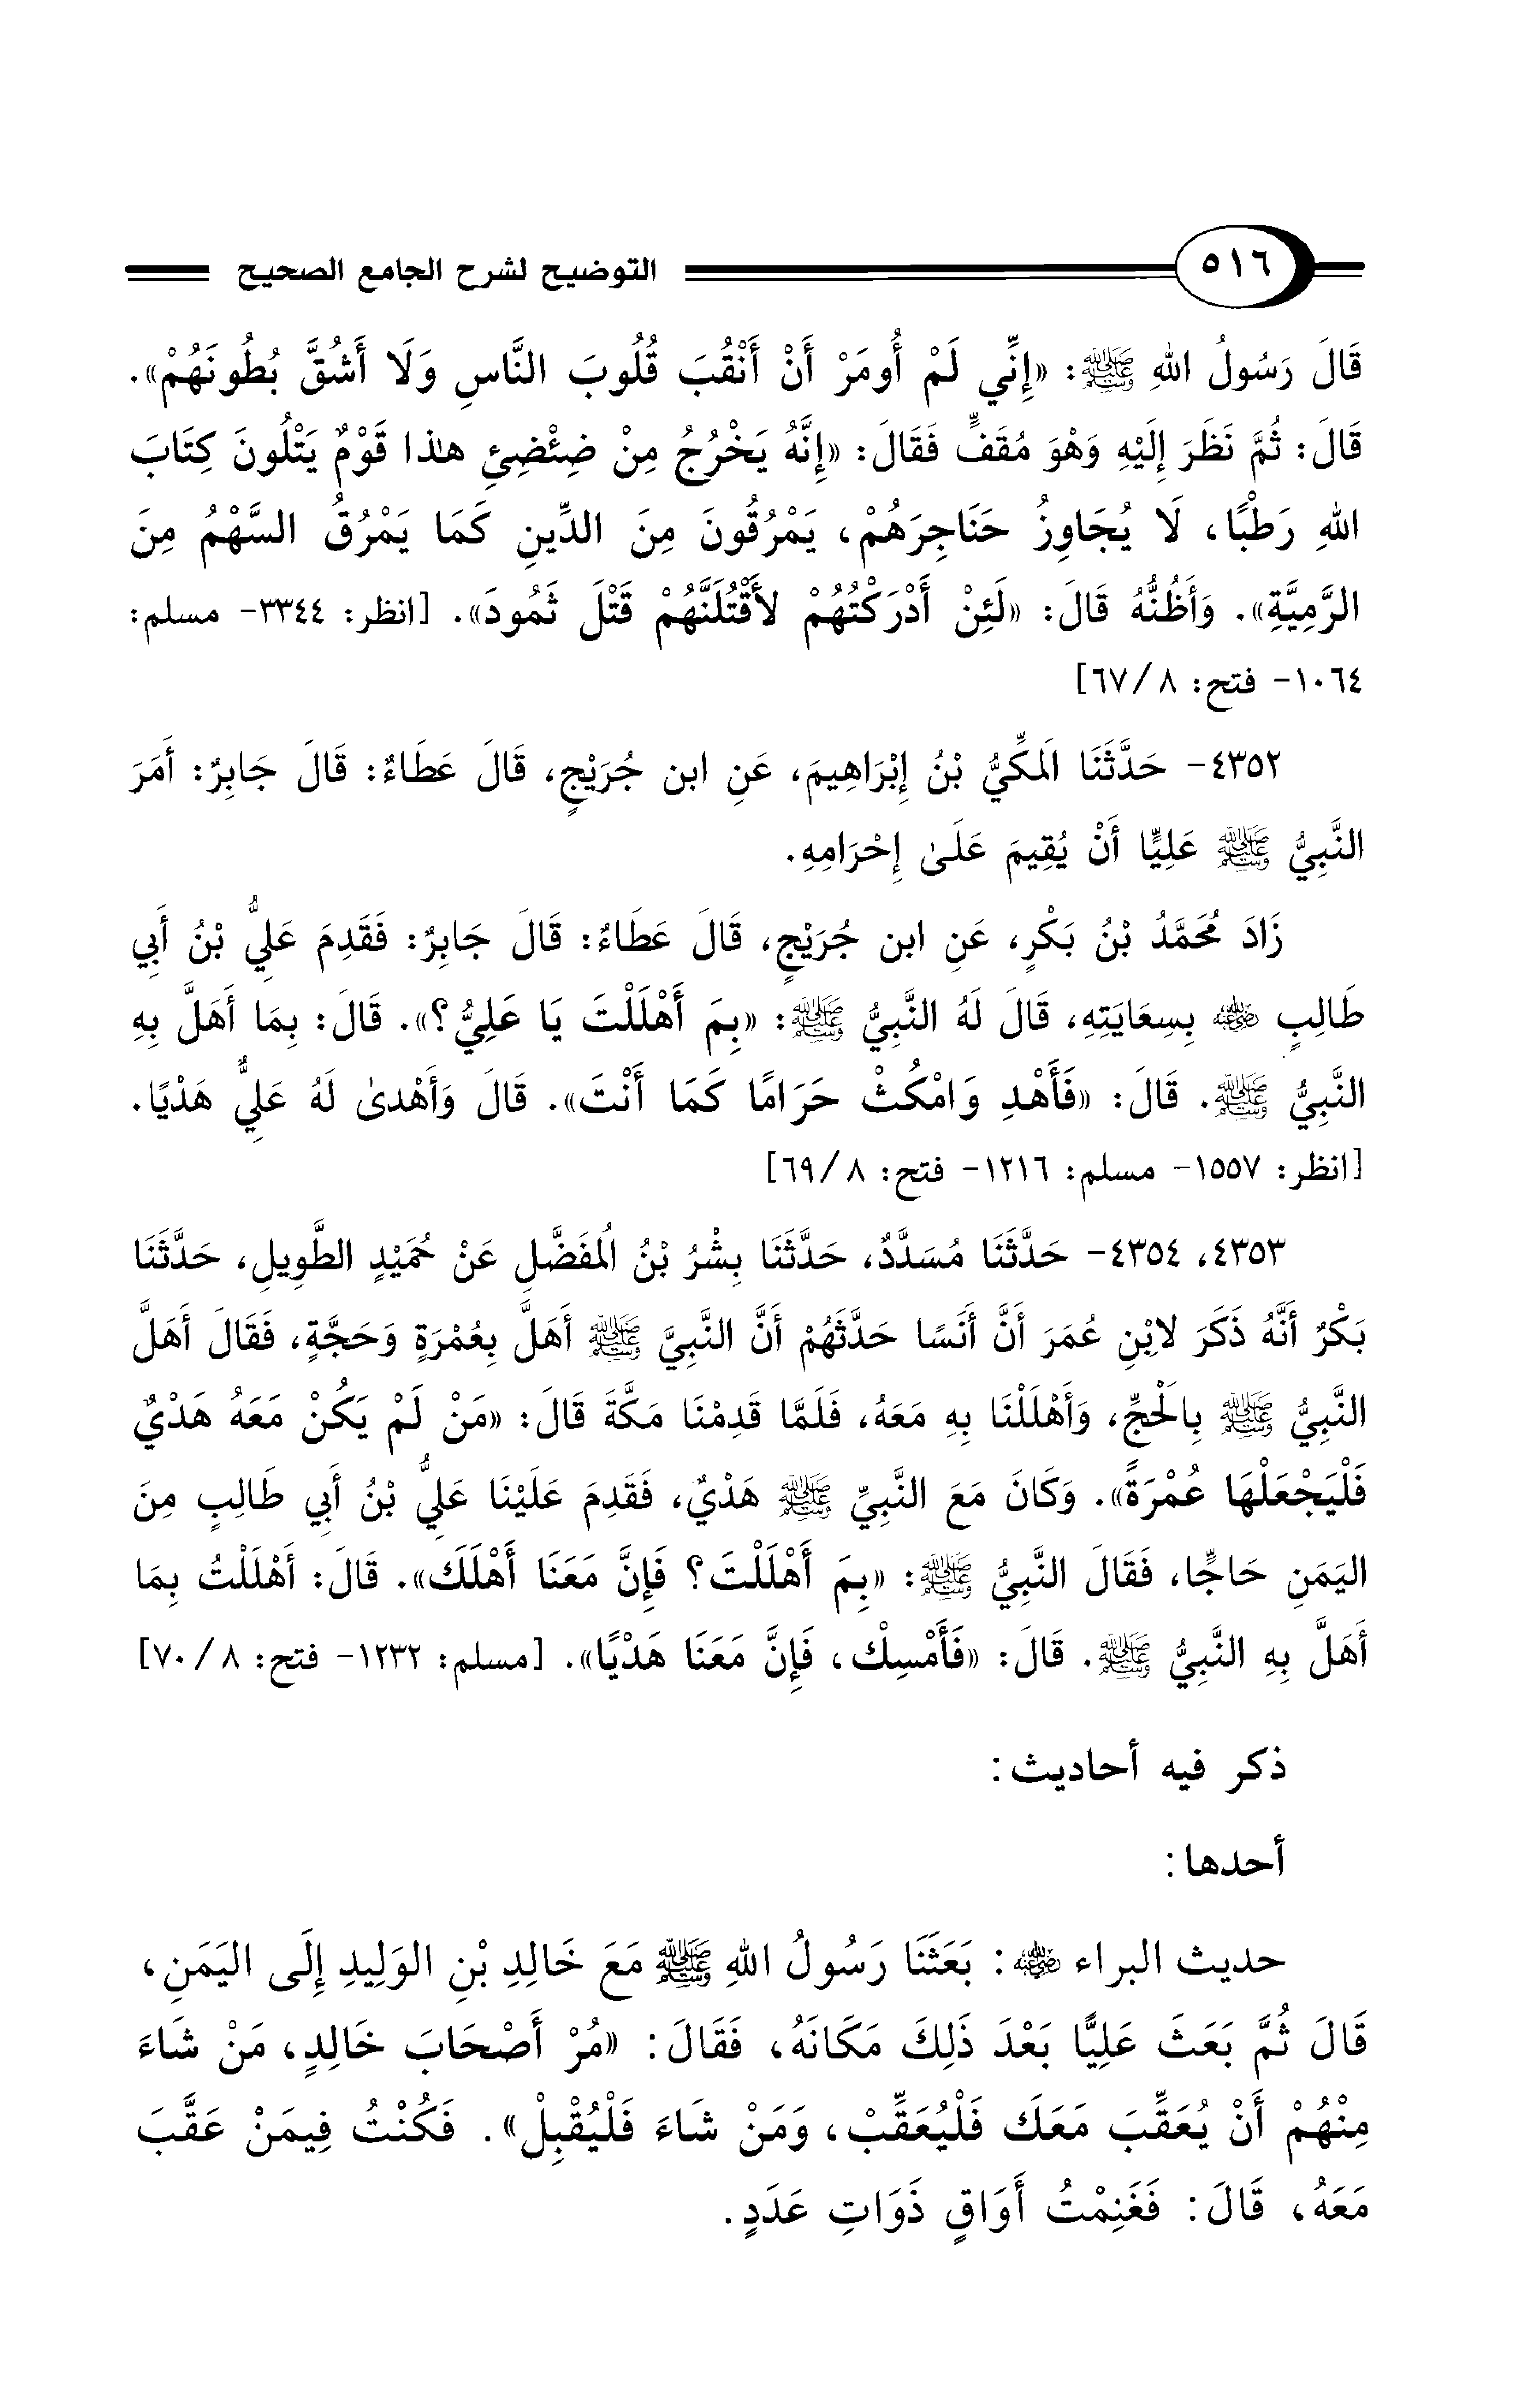 ٥١٦ التوضيح لشرح الجامع الصحيح
قَالَ رَسُولُ اللهِ ﷺ: «إِنِّي لَمْ أُومَرْ أَنْ أَنْقُبَ قُلُوبَ النَّاسِ وَلَا أَشُقَّ بُطُونَهُمْ».
قَالَ: ثُمَّ نَظَرَ إِلَيْهِ وَهْوَ مُقَفٍّ فَقَالَ: «إِنَّهُ يَخْرُجُ مِنْ ضِئْضِئِ هذا قَوْمٌ يَتْلُونَ كِتَابَ
اللهِ رَطْبًا، لَا يُجَاوِزُ حَنَاجِرَهُمْ، يَمْرُقُونَ مِنَ الدِّينِ كَمَا يَمْرُقُ السَّهْمُ مِنَ
الرَّمِيَّةِ». وَأَظُنُّهُ قَالَ: «لَئِنْ أَدْرَكْتُهُمْ لأَقْتُلَنَّهُمْ قَتْلَ ثَمُودَ». [انظر: ٣٣٤٤- مسلم:
١٠٦٤- فتح: ٨/ ٦٧]
٤٣٥٢- حَدَّثَنَا المَكِّيُّ بْنُ إِبْرَاهِيمَ، عَنِ ابن جُرَيْجٍ، قَالَ عَطَاءٌ: قَالَ جَابِرٌ: أَمَرَ
النَّبِيُّ ﷺ عَلِيًّا أَنْ يُقِيمَ عَلَىٰ إِحْرَامِهِ.
زَادَ مُحَمَّدُ بْنُ بَكْرٍ، عَنِ ابن جُرَيْجٍ، قَالَ عَطَاءٌ: قَالَ جَابِرٌ: فَقَدِمَ عَلِيُّ بْنُ أَبِي
طَالِبٍ رضي الله عنه بِسِعَايَتِهِ، قَالَ لَهُ النَّبِيُّ ﷺ: «بِمَ أَهْلَلْتَ يَا عَلِيُّ؟». قَالَ: بِمَا أَهَلَّ بِهِ
النَّبِيُّ ﷺ. قَالَ: «فَأَهْدِ وَامْكُثْ حَرَامًا كَمَا أَنْتَ». قَالَ وَأَهْدىٰ لَهُ عَلِيٌّ هَدْيًا.
[انظر: ١٥٥٧- مسلم: ١٢١٦- فتح: ٨/ ٦٩]
٤٣٥٣، ٤٣٥٤- حَدَّثَنَا مُسَدَّدٌ، حَدَّثَنَا بِشْرُ بْنُ المُفَضَّلِ عَنْ حُمَيْدٍ الطَّوِيلِ، حَدَّثَنَا
بَكْرٌ أَنَّهُ ذَكَرَ لاِبْنِ عُمَرَ أَنَّ أَنَسًا حَدَّثَهُمْ أَنَّ النَّبِيَّ ﷺ أَهَلَّ بِعُمْرَةٍ وَحَجَّةٍ، فَقَالَ أَهَلَّ
النَّبِيُّ ﷺ بِالْحَجِّ، وَأَهْلَلْنَا بِهِ مَعَهُ، فَلَمَّا قَدِمْنَا مَكَّةَ قَالَ: «مَنْ لَمْ يَكُنْ مَعَهُ هَدْيٌ
فَلْيَجْعَلْهَا عُمْرَةً». وَكَانَ مَعَ النَّبِيِّ ﷺ هَدْيٌ، فَقَدِمَ عَلَيْنَا عَلِيُّ بْنُ أَبِي طَالِبٍ مِنَ
اليَمَنِ حَاجًّا، فَقَالَ النَّبِيُّ ﷺ: «بِمَ أَهْلَلْتَ؟ فَإِنَّ مَعَنَا أَهْلَكَ». قَالَ: أَهْلَلْتُ بِمَا
أَهَلَّ بِهِ النَّبِيُّ ﷺ. قَالَ: «فَأَمْسِكْ، فَإِنَّ مَعَنَا هَدْيًا». [مسلم: ١٢٣٢- فتح: ٨/ ٧٠]
ذكر فيه أحاديث:
أحدها:
حديث البراء رضي الله عنه: بَعَثَنَا رَسُولُ اللهِ ﷺ مَعَ خَالِدِ بْنِ الوَلِيدِ إِلَى اليَمَنِ،
قَالَ ثُمَّ بَعَثَ عَلِيًّا بَعْدَ ذَلِكَ مَكَانَهُ، فَقَالَ: «مُرْ أَصْحَابَ خَالِدٍ، مَنْ شَاءَ
مِنْهُمْ أَنْ يُعَقِّبَ مَعَكَ فَلْيُعَقِّبْ، وَمَنْ شَاءَ فَلْيُقْبِلْ». فَكُنْتُ فِيمَنْ عَقَّبَ
مَعَهُ، قَالَ: فَغَنِمْتُ أَوَاقٍ ذَوَاتِ عَدَدٍ.